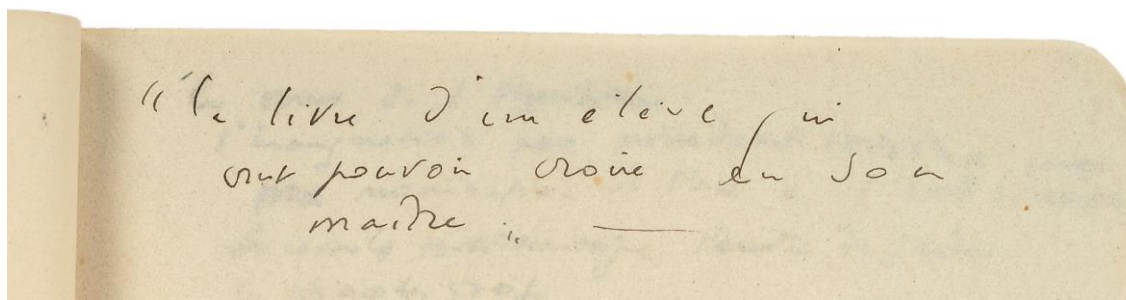 "le livre d'un élève qui
veut pouvoir croire en son
maître." —